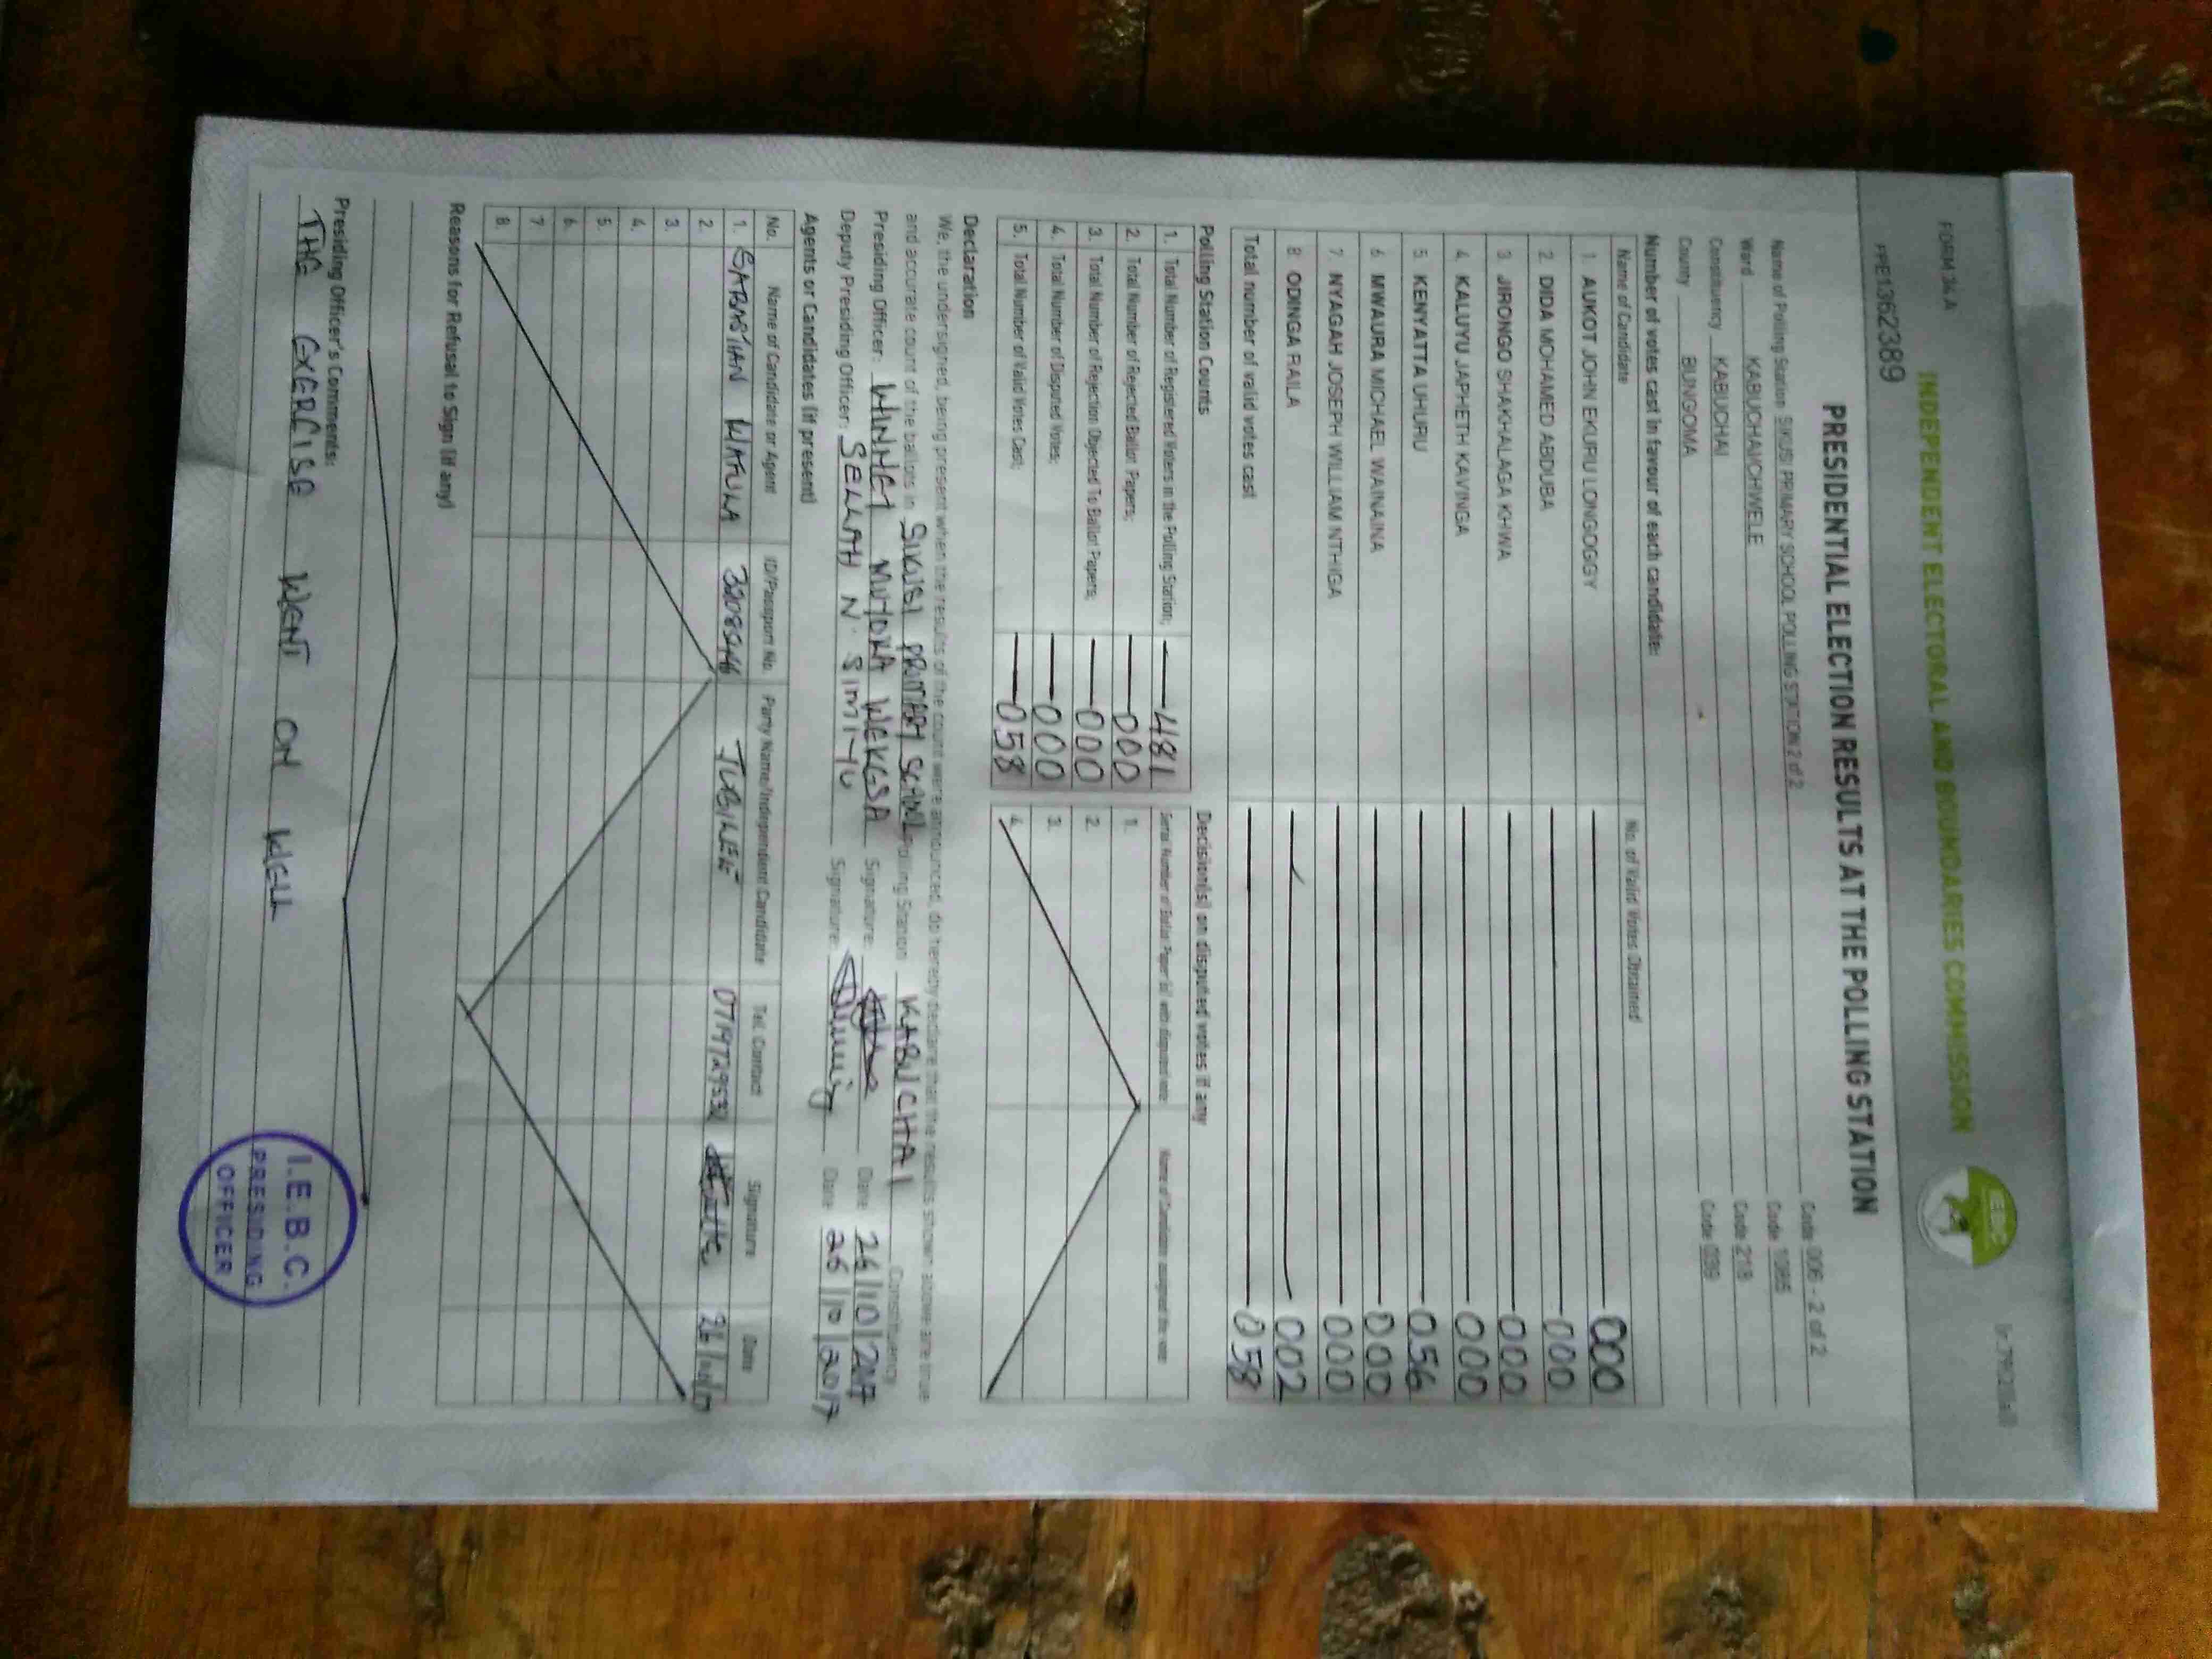 FORM 34 A
INDEPENDENT ELECTORAL AND BOUNDARIES COMMISSION
IEBC
PPE1362389
PRESIDENTIAL ELECTION RESULTS AT THE POLLING STATION
Name of Polling Station SIKUSI PRIMARY SCHOOL POLLING STATION 2 of 2 Code 006 - 2 of 2
Ward KABUCHAI/CHWELE Code 1085
Constituency KABUCHAI Code 218
County BUNGOMA Code 039
Number of votes cast in favour of each candidate:
Name of Candidate No. of Valid Votes Obtained
1. AUKOT JOHN EKURU LONGOGGY 000
2. DIDA MOHAMED ABDUBA 000
3 JIRONGO SHAKHALAGA KHWA 000
4 KALUYU JAPHETH KAVINGA 000
5 KENYATTA UHURU 056
6 MWAURA MICHAEL WAINAINA 000
7 NYAGAH JOSEPH WILLIAM NTHIGA 000
8 ODINGA RAILA 002
Total number of valid votes cast 058
Polling Station Counts
1. Total Number of Registered Voters in the Polling Station; 481
2. Total Number of Rejected Ballot Papers; 000
3. Total Number of Rejection Objected To Ballot Papers; 000
4. Total Number of Disputed Votes; 000
5. Total Number of Valid Votes Cast; 058
Decision(s) on disputed votes if any
Serial Number of Ballot Paper(s) with disputed vote Name of Candidate assigned the vote
1.
2.
3.
4.
Declaration
We, the undersigned, being present when the results of the count were announced, do hereby declare that the results shown above are true
and accurate count of the ballots in SIKUSI PRIMARY SCHOOL Polling Station KABUCHAI Constituency
Presiding Officer: WINNET MUYOKA WEKESA Signature: Date 26/10/2017
Deputy Presiding Officer: SELLAH N. SIMIYU Signature: Date 26/10/2017
Agents or Candidates (if present)
No. Name of Candidate or Agent ID/Passport No. Party Name/Independent Candidate Tel. Contact Signature Date
1. SABASTIAN WAFULA JUBILEE 26/10/17
2.
3.
4.
5.
6.
7.
8.
Reasons for Refusal to Sign (if any)
Presiding Officer's Comments:
THE EXERCISE WENT ON WELL
I.E.B.C.
PRESIDING
OFFICER